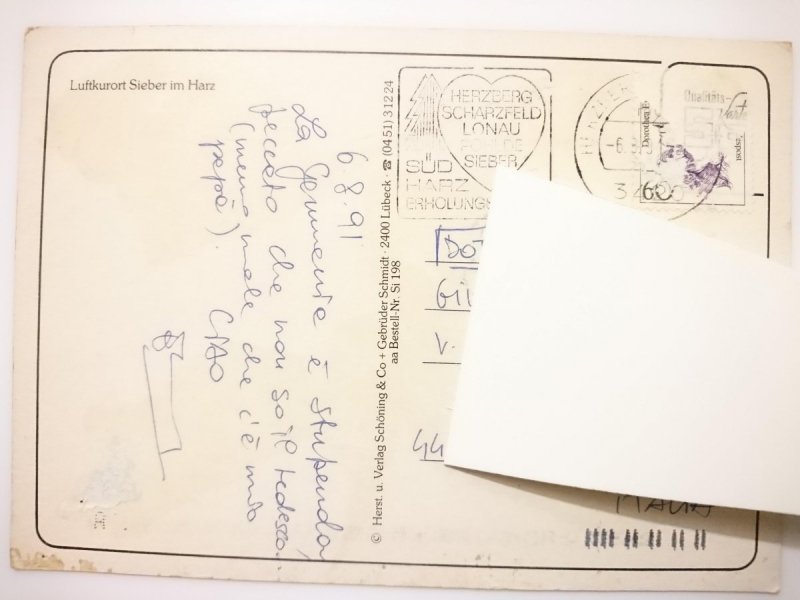 Luftkurort Sieber im Harz
6.8.91
La Germania è stupenda,
peccato che non so il tedesco.
(meno male che c'è mio
papà).
CIAO
© Herst. u. Verlag Schöning & Co + Gebrüder Schmidt · 2400 Lübeck · ☎ (04 51) 3 12 24
aa Bestell-Nr. Si 198
HERZBERG
SCHARZFELD
LONAU
SIEBER
SÜD
HARZ
ERHOLUNG
Qualitäts-
60
V.
44